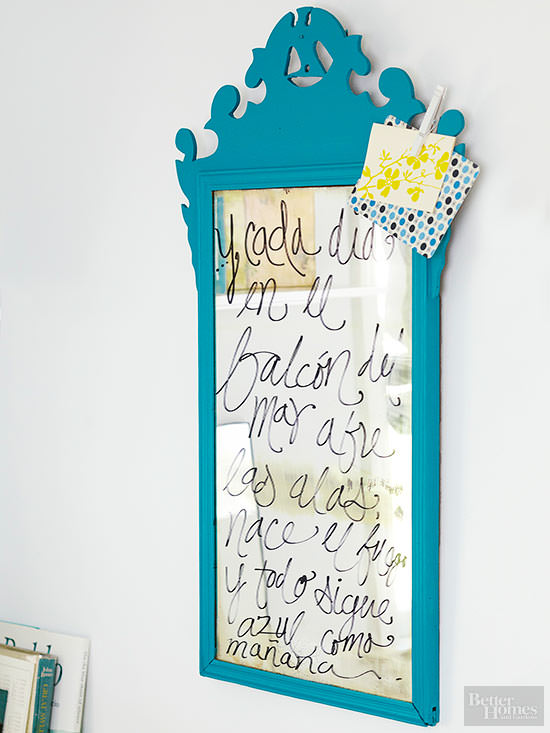 y, cada día,
en el
balcón del
mar abre
las alas,
nace el fuego
y todo sigue
azul como
mañana...
Better
Homes
and Gardens